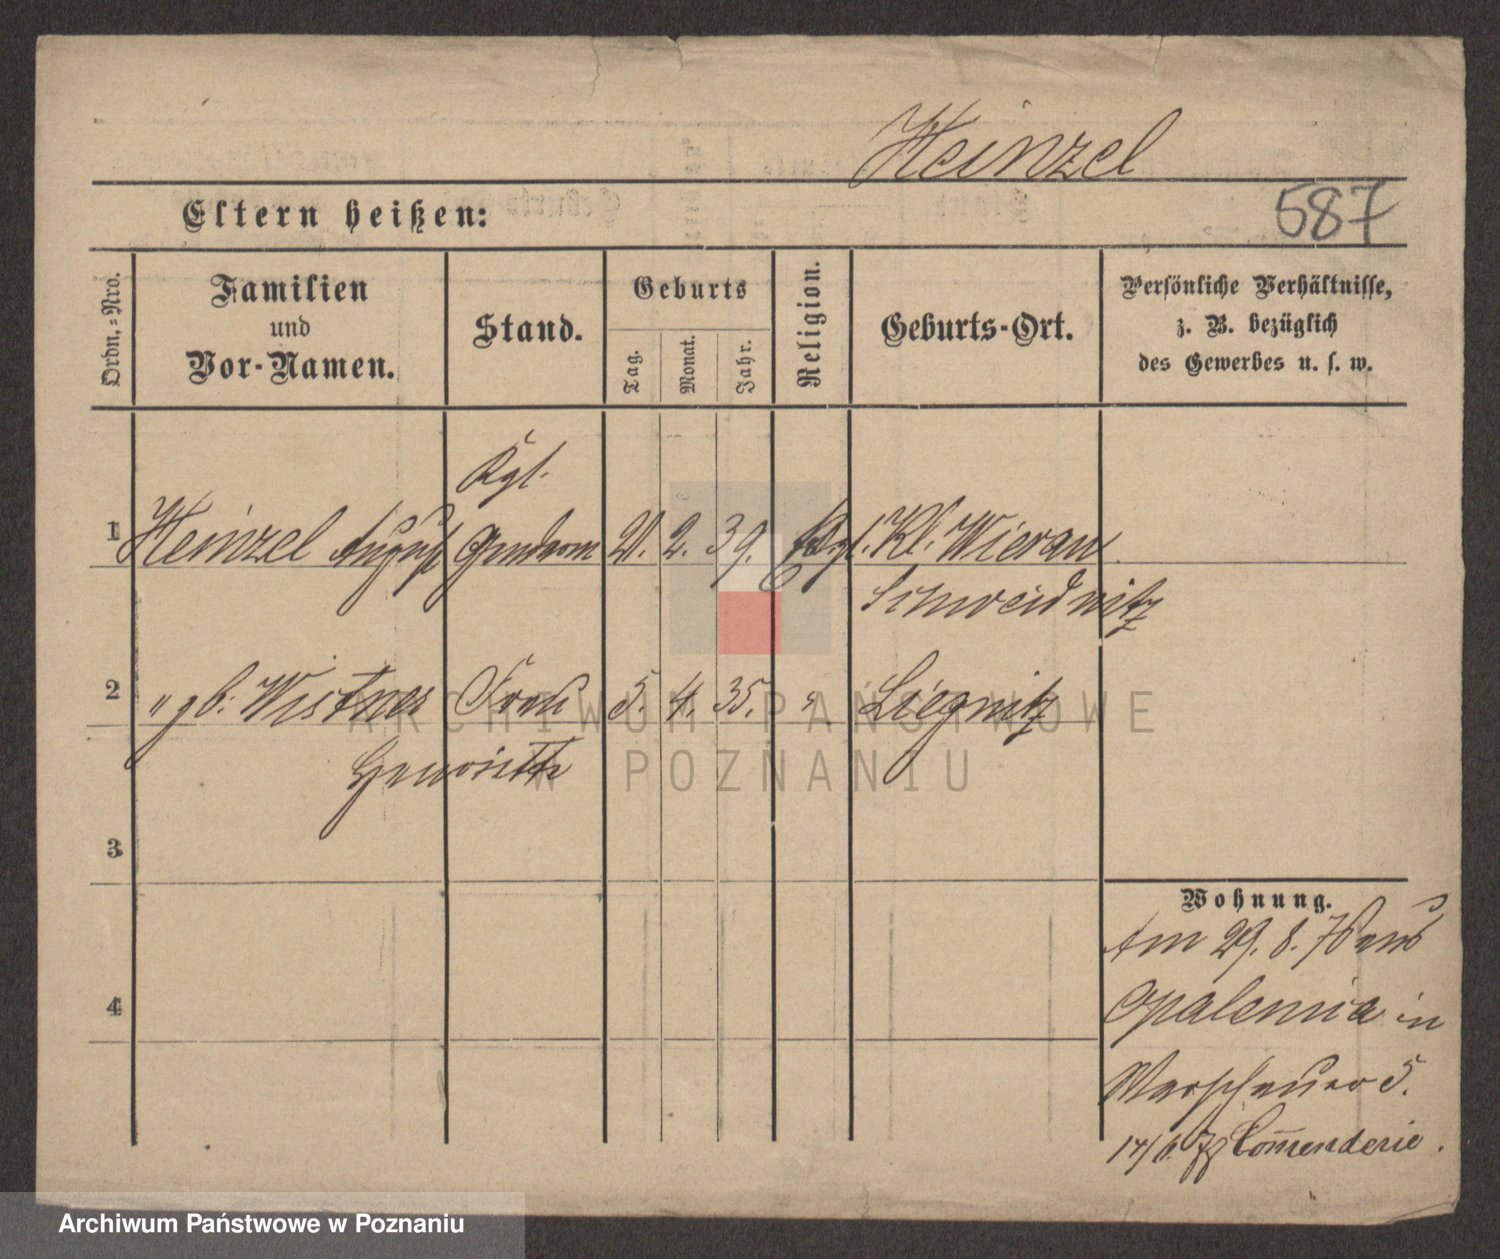 Heinzel
587
Eltern heißen:
Ordn.=Nro.
Familien
und
Vor-Namen.
Stand.
Geburts
Tag.
Monat.
Jahr.
Religion.
Geburts-Ort.
Persönliche Verhältnisse,
z. B. bezüglich
des Gewerbes u. s. w.
Kgl.
1 Heinzel August Gendarm 2. 39. Kl. Wierau
Schweidnitz
2 " gb. Wistner Frau 5. 4. 35. " Liegnitz
3
4
Wohnung.
Am 29. 8. 76 aus
Opalenica in
Warschauer 5.
Com̄enderie.
ARCHIWUM PAŃSTWOWE
W POZNANIU
Archiwum Państwowe w Poznaniu